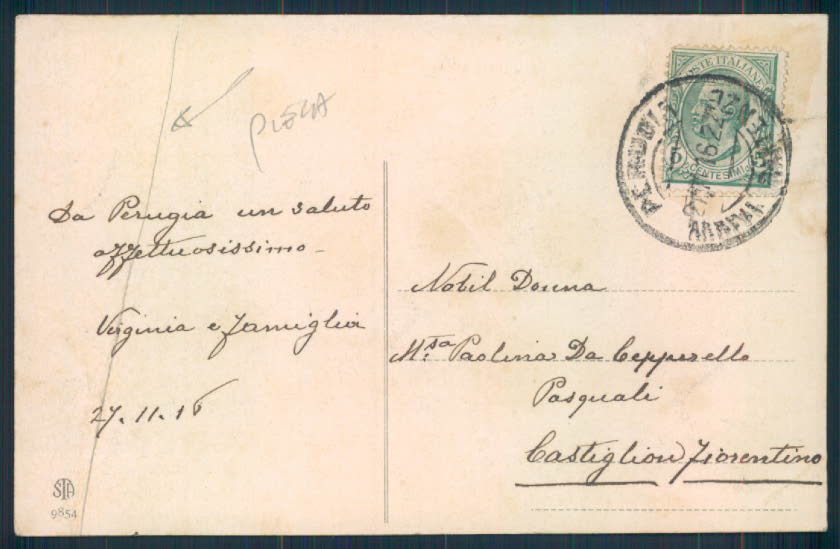 PIEGA
Da Perugia un saluto
affettuosissimo -
Virginia e famiglia
27.11.16
STA
9854
POSTE ITALIANE
CENTESIMI
PERUGIA
ARRIVI
Nobil Donna
M.sa Paolina Da Cepperello
Pasquali
Castiglion Fiorentino